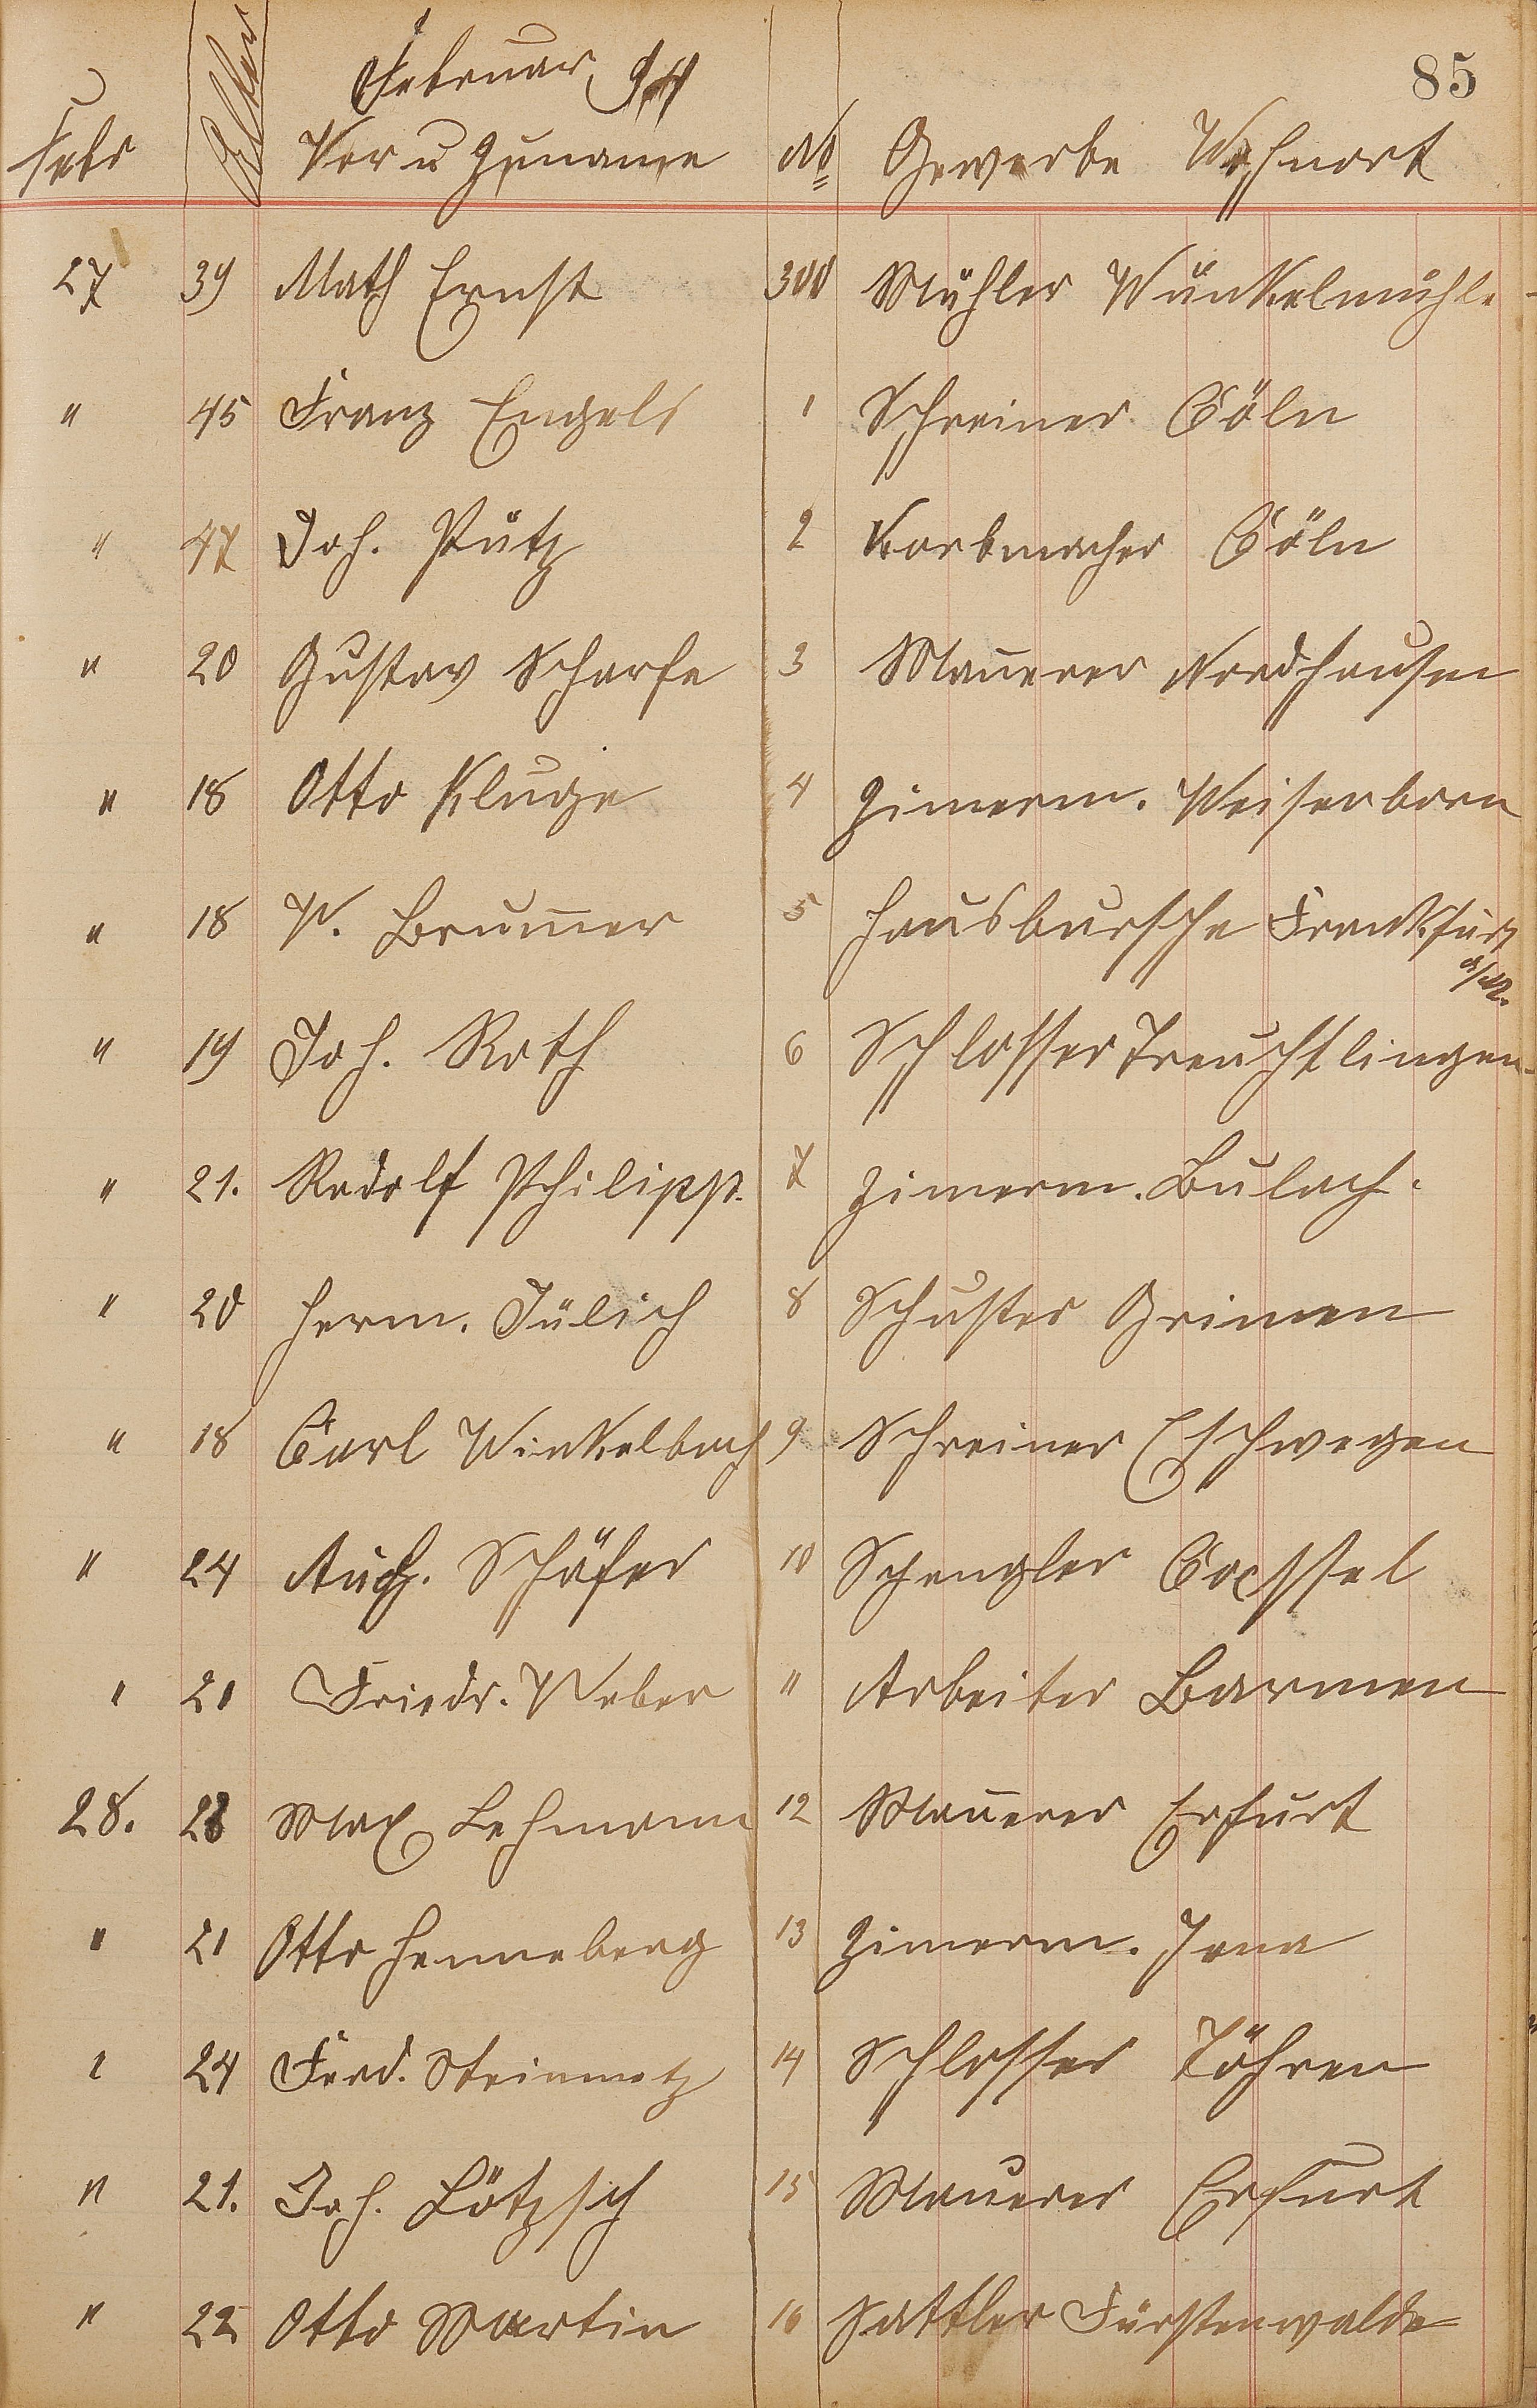 Februar 94
85
Febr Alter Vor u Zuname No Gewerbe Wohnort
27 39 Math Ernst 300 Mühler Wünkelmühle
" 45 Franz Engels 1 Schreiner Cöln
" 47 Joh. Pütz 2 Korbmacher Cöln
" 20 Gustav Scharfe 3 Maurer Nordhausen
" 18 Otto Kluge 4 Zimerm. Weiserborn
" 18 W. Brum̄er 5 Hausbursche Frankfurt
a/M.
" 19 Joh. Roth 6 Schlosser Treuchtlingen
" 21. Rodolf Philipp. 7 Zimerm. Bulach.
" 20 Herm. Jülich 8 Schuster Grimen
" 18 Carl Winkelbach 9 Schreiner Eschwegen
" 24 Aug. Schäfer 10 Spengler Cassel
" 21 Friedr. Weber 11 Arbeiter Barmen
28. 28 Max Lehmann 12 Maurer Erfurt
" 21 Otto Henneberg 13 Zimerm. Jena
" 24 Ferd. Steinmetz 14 Schlosser Föhren
" 21. Joh. Lötzsch 15 Maurer Erfurt
" 22 Otto Martin 16 Sattler Fürstenwalde